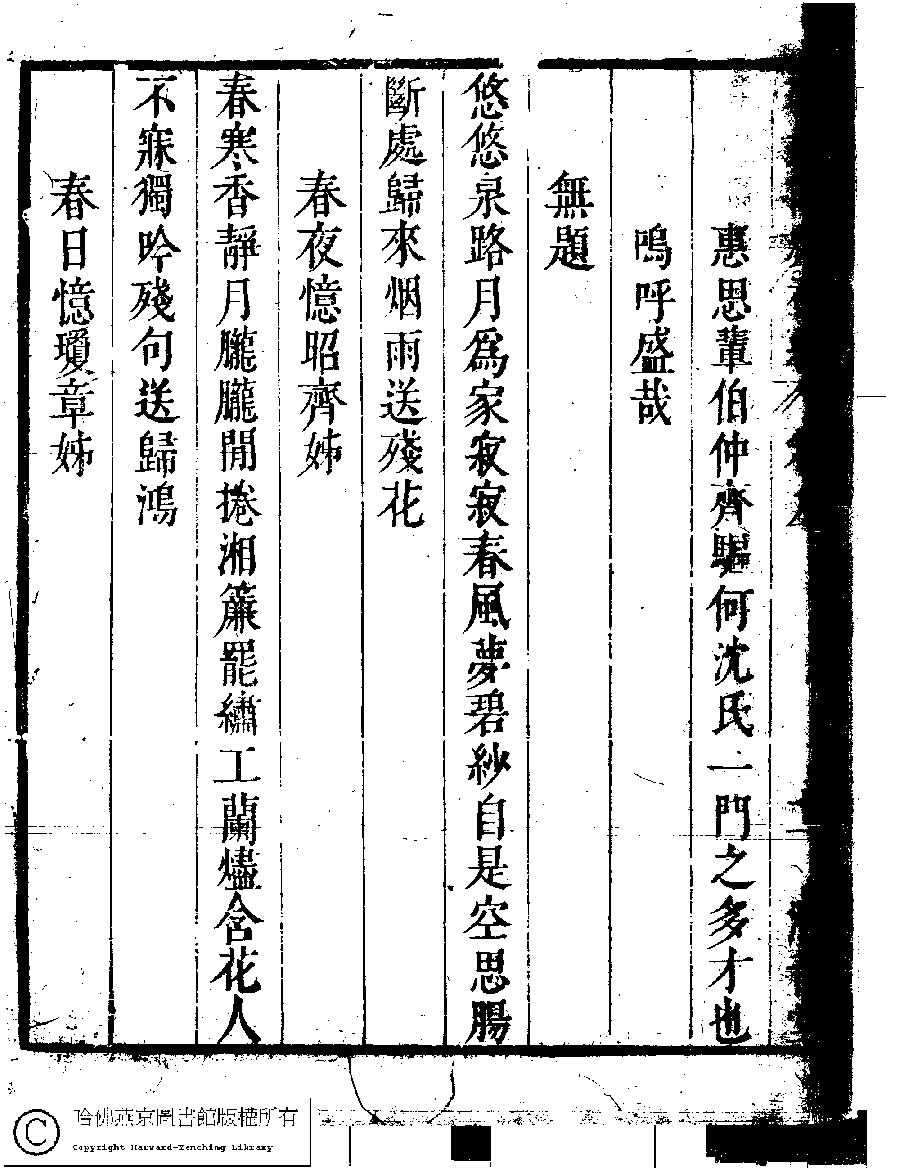 惠思輩伯仲齊驅何沈氏一門之多才也
嗚呼盛哉
無題
悠悠泉路月為家寂寂春風夢碧紗自是空思腸
斷處歸來烟雨送殘花
春夜憶昭齊姊
春寒香靜月朧朧閒捲湘簾罷繡工蘭燼含花人
不寐獨吟殘句送歸鴻
春日憶瓊章姊
哈佛燕京圖書館版權所有
Copyright Harvard-Yenching Library